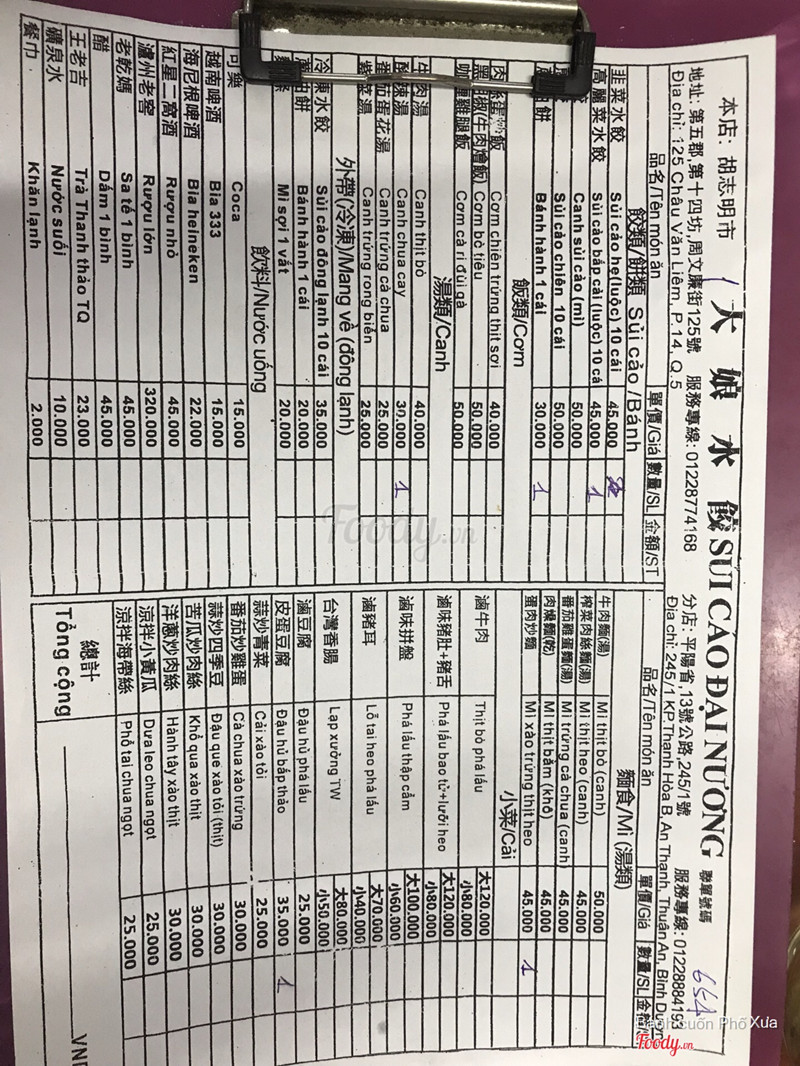 大娘水餃 SỦI CẢO ĐẠI NƯƠNG 聯單號碼 654
本店: 胡志明市
地址: 第五郡,第十四坊,周文廉街125號 服務專線: 01228774168
Địa chỉ: 125 Châu Văn Liêm, P.14, Q.5
分店: 平陽省,13號公路,245/1號 服務專線: 01228884193
Địa chỉ: 245/1 KP.Thạnh Hòa B, An Thạnh, Thuận An, Bình Dương
品名/Tên món ăn 單價/Giá 數量/SL 金額/ST
餃類/餅類 Sủi cảo/Bánh
韭菜水餃 Sủi cảo hẹ(luộc) 10 cái 45.000
高麗菜水餃 Sủi cảo bắp cải(luộc) 10 cá 45.000 1
Canh sủi cảo (mì) 50.000
Sủi cảo chiên 10 cái 50.000
餅 Bánh hành 1 cái 30.000 1
飯類/Cơm
肉絲蛋炒飯 Cơm chiên trứng thịt sợi 40.000
黑胡椒(牛肉燴飯) Cơm bò tiêu 50.000
咖喱雞腿飯 Cơm cà ri đùi gà 50.000
湯類/Canh
牛肉湯 Canh thịt bò 40.000
酸辣湯 Canh chua cay 30.000 1
番茄蛋花湯 Canh trứng cà chua 25.000
紫菜湯 Canh trứng rong biển 25.000
外帶(冷凍)/Mang về (đông lạnh)
冷凍水餃 Sủi cảo đông lạnh 10 cái 35.000
餅 Bánh hành 1 cái 20.000
Mì sợi 1 vắt 20.000
飲料/Nước uống
可樂 Coca 15.000
越南啤酒 Bia 333 15.000
海尼根啤酒 Bia heineken 22.000
紅星二窩酒 Rượu nhỏ 45.000
瀘州老窖 Rượu lớn 320.000
老乾媽 Sa tế 1 bình 45.000
醋 Dấm 1 bình 45.000
王老吉 Trà Thanh thảo TQ 23.000
礦泉水 Nước suối 10.000
餐巾 Khăn lạnh 2.000
品名/Tên món ăn 單價/Giá 數量/SL 金額
麵食/Mì (湯類)
牛肉麵(湯) Mì thịt bò (canh) 50.000
榨菜肉絲麵(湯) Mì thịt heo (canh) 45.000
番茄雞蛋麵(湯) Mì trứng cà chua (canh) 45.000
肉燥麵(乾) Mì thịt bằm (khô) 45.000
蛋肉炒麵 Mì xào trứng thịt heo 45.000 1
小菜/Cải
滷牛肉 Thịt bò phá lấu 大120.000
小80.000
滷味豬肚+豬舌 Phá lấu bao tử+lưỡi heo 大120.000
小80.000
滷味拼盤 Phá lấu thập cẩm 大100.000
小60.000
滷豬耳 Lỗ tai heo phá lấu 大70.000
小40.000
台灣香腸 Lạp xưởng TW 大80.000
小50.000
滷豆腐 Đậu hủ phá lấu 25.000
皮蛋豆腐 Đậu hủ bắp thảo 35.000 1
蒜炒青菜 Cải xào tỏi 25.000
番茄炒雞蛋 Cà chua xào trứng 30.000
蒜炒四季豆 Đậu que xào tỏi (thịt) 30.000
苦瓜炒肉絲 Khổ qua xào thịt 30.000
洋蔥炒肉絲 Hành tây xào thịt 30.000
涼拌小黃瓜 Dưa leo chua ngọt 25.000
涼拌海帶絲 Phổ tai chua ngọt 25.000
總計
Tổng cộng VNĐ
Foody.vn
Bánh cuốn Phố Xưa
Foody.vn